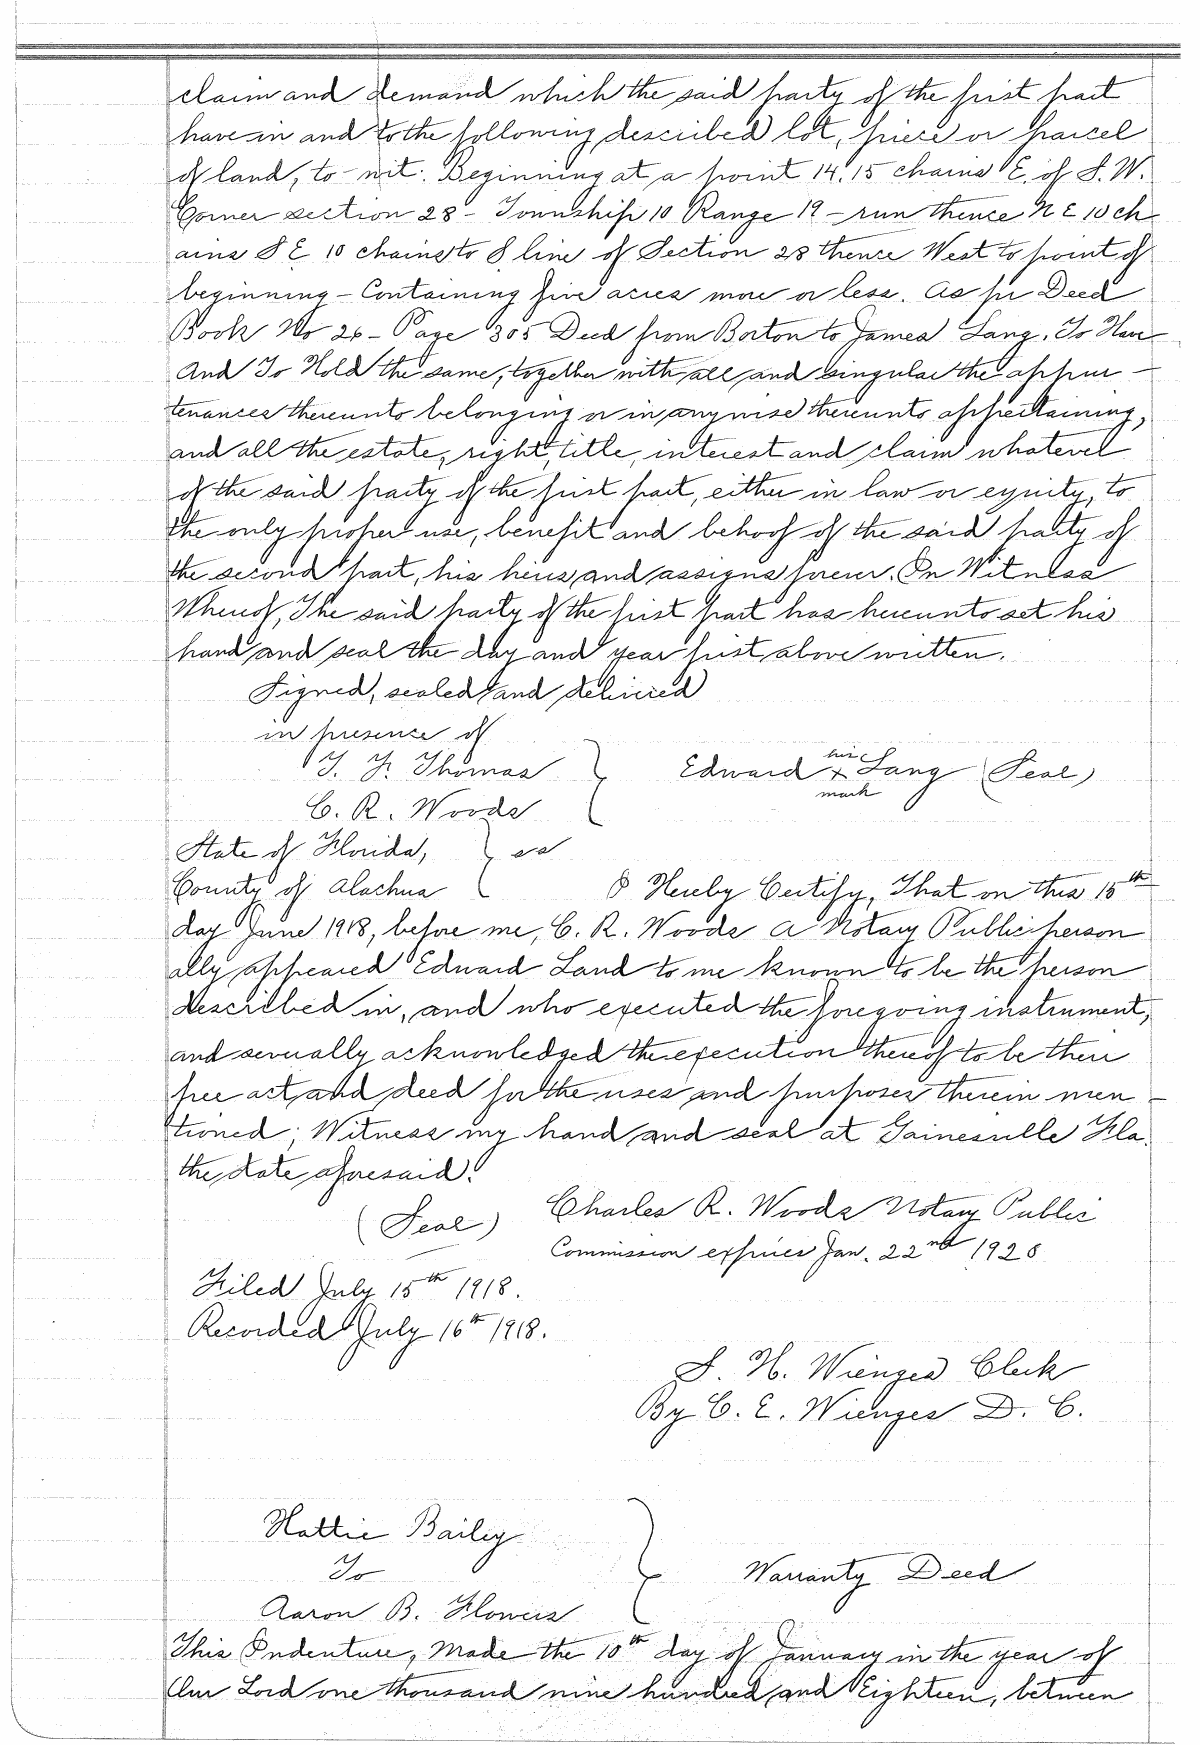 claim and demand which the said party of the first part
have in and to the following described lot, piece or parcel
of land, to-wit: Beginning at a point 14.15 chains E. of S.W.
Corner section 28 - Township 10 Range 19 - run thence N E 10 ch
ains S E 10 chains to S line of Section 28 thence West to point of
beginning - Containing five acres more or less. As per Deed
Book No 26 - Page 305 Deed from Borton to James Lang. To Have
And To Hold the same, together with all and singular the appur -
tenances thereunto belonging or in anywise thereunto appertaining,
and all the estate, right, title, interest and claim whatever
of the said party of the first part, either in law or equity, to
the only proper use, benefit and behoof of the said party of
the second part, his heirs and assigns forever. In Witness
Whereof, The said party of the first part has hereunto set his
hand and seal the day and year first above written.
Signed, sealed and delivered
in presence of
T. F. Thomas
his
Edward x Lang (Seal)
mark
C. R. Woods
State of Florida, ss
County of Alachua I Hereby Certify, That on this 15th
day June 1918, before me, C. R. Woods a Notary Public person
ally appeared Edward Land to me known to be the person
described in, and who executed the foregoing instrument,
and severally acknowledged the execution thereof to be their
free act and deed for the uses and purposes therein men -
tioned; Witness my hand and seal at Gainesville Fla.
the date aforesaid.
(Seal) Charles R. Woods Notary Public
Commission expires Jan. 22nd 192
Filed July 15th 1918.
Recorded July 16th 1918.
S. H. Wienges Clerk
By C. E. Wienges D. C.
Hattie Bailey
To
Warranty Deed
Aaron B. Flowers
This Indenture, Made the 10th day of January in the year of
Our Lord one thousand nine hundred and Eighteen, between